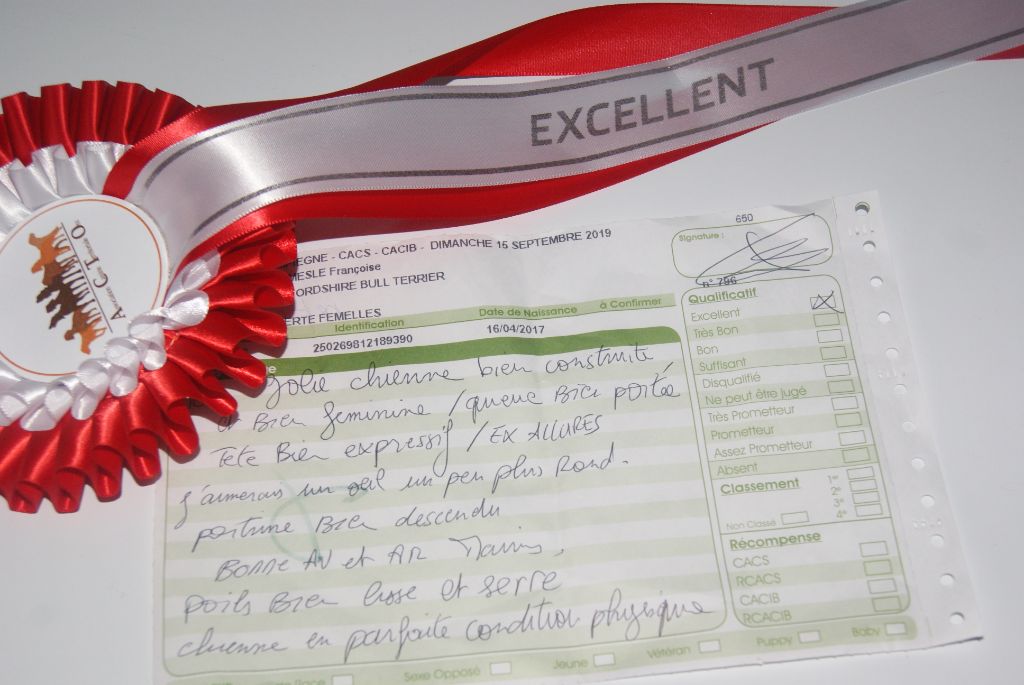 EXCELLENT
EGNE - CACS - CACIB - DIMANCHE 15 SEPTEMBRE 2019
650
MESLE Françoise
Signature :
FORDSHIRE BULL TERRIER
n° 796
ERTE FEMELLES
Identification
Date de Naissance
à Confirmer
250269812189390
16/04/2017
Jolie chienne bien construite
et Bien feminine / queue Bien portée
Tete Bien expressif / EX ALLURES
J'aimerais un oeil un peu plus Rond.
poitrine Bien descendu
BONNE AV et AR Mains,
poils Bien lisse et serre
chienne en parfaite condition physique
Qualificatif
Excellent
Très Bon
Bon
Suffisant
Disqualifié
Ne peut être jugé
Très Prometteur
Prometteur
Assez Prometteur
Absent
Classement
1er
2e
3e
4e
Non Classé
Récompense
CACS
RCACS
CACIB
RCACIB
Race
Sexe Opposé
Jeune
Vétéran
Puppy
Baby